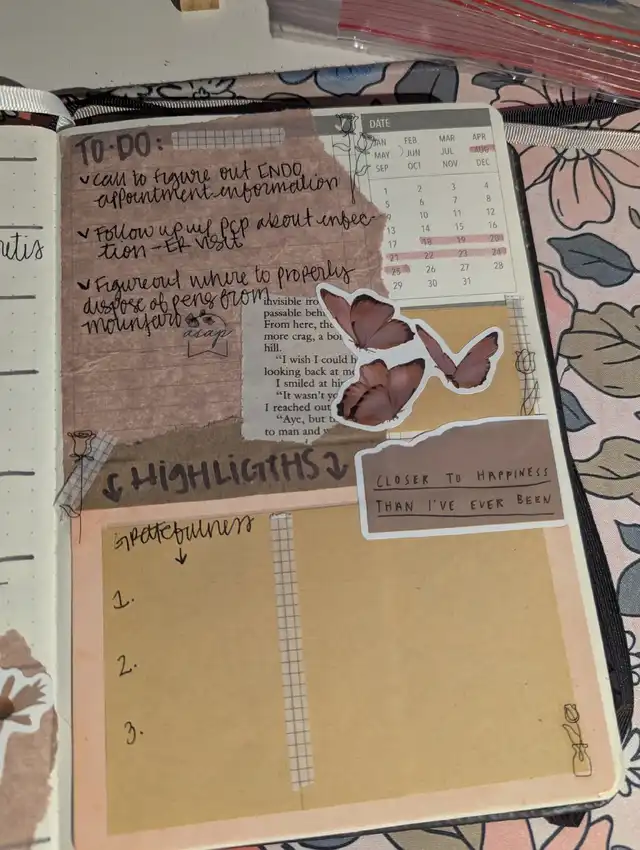 TO-DO:
✓ call to figure out ENDO
appointment information
✓ Follow up w/ PCP about infec-
tion - ER visit
✓ Figure out where to properly
dispose of pens from
mounjaro
asap
DATE
JAN FEB MAR APR
MAY JUN JUL AUG
SEP OCT NOV DEC
1 2 3 4
5 6 7 8
9 10 11 12
13 14 15 16
17 18 19 20
21 22 23 24
25 26 27 28
29 30 31
invisible
passable beh
From here, the
more crag, a
hill.
"I wish I could h
looking back at me
I smiled at hi
"It wasn't yo
I reached out
"Aye, but
to man and w
HIGHLIGTHS
CLOSER TO HAPPINESS
THAN I'VE EVER BEEN
gratefulness
1.
2.
3.